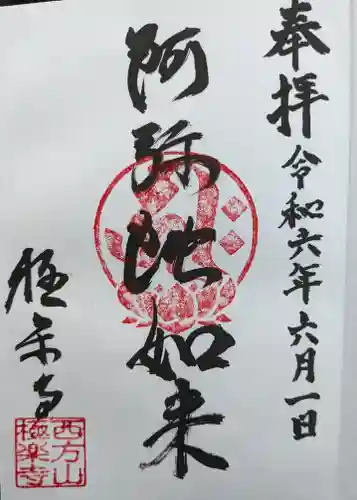 奉拝 令和六年六月一日
阿弥陀如来
極楽寺
西方山
極楽寺